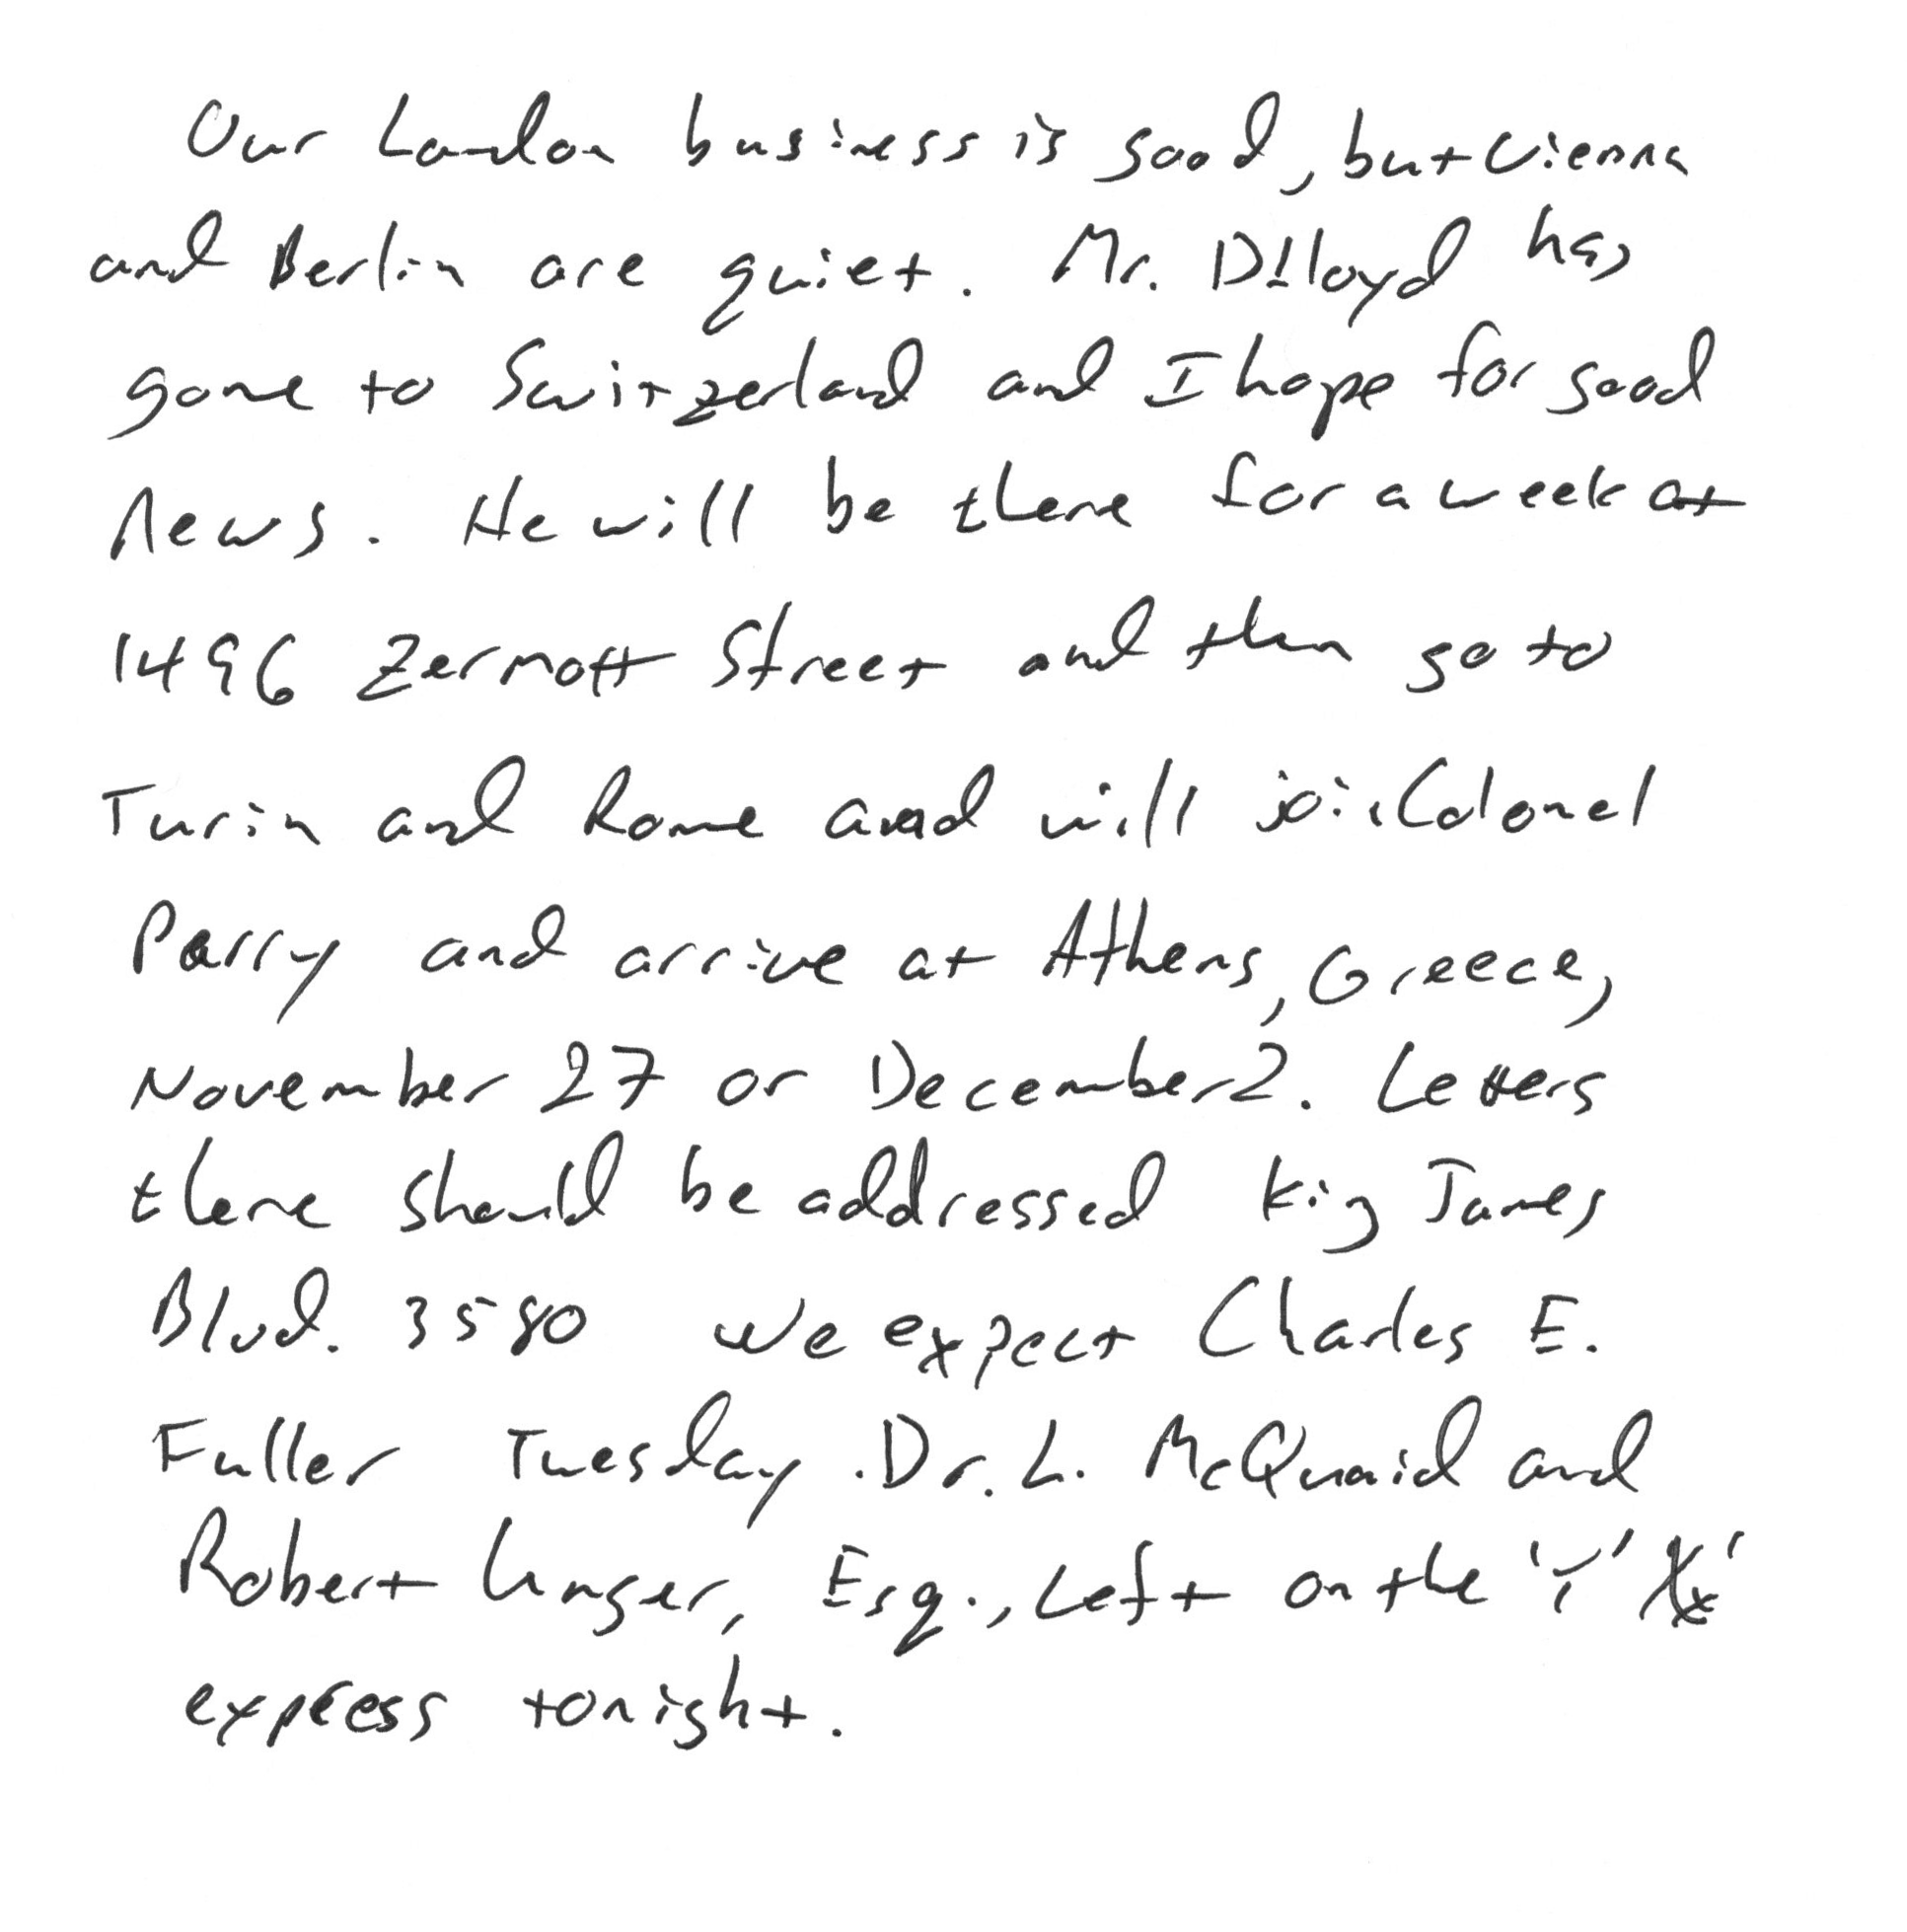 Our London business is good, but Vienna
and Berlin are quiet. Mr. D. Lloyd has
gone to Switzerland and I hope for good
news. He will be there for a week at
1496 Zermott Street and then go to
Turin and Rome and will join Colonel
Parry and arrive at Athens, Greece,
November 27 or December 2. Letters
there should be addressed King James
Blvd. 3580 We expect Charles E.
Fuller Tuesday. Dr. L. McQuaid and
Robert Unger, Esq., Left on the 'Y'
express tonight.